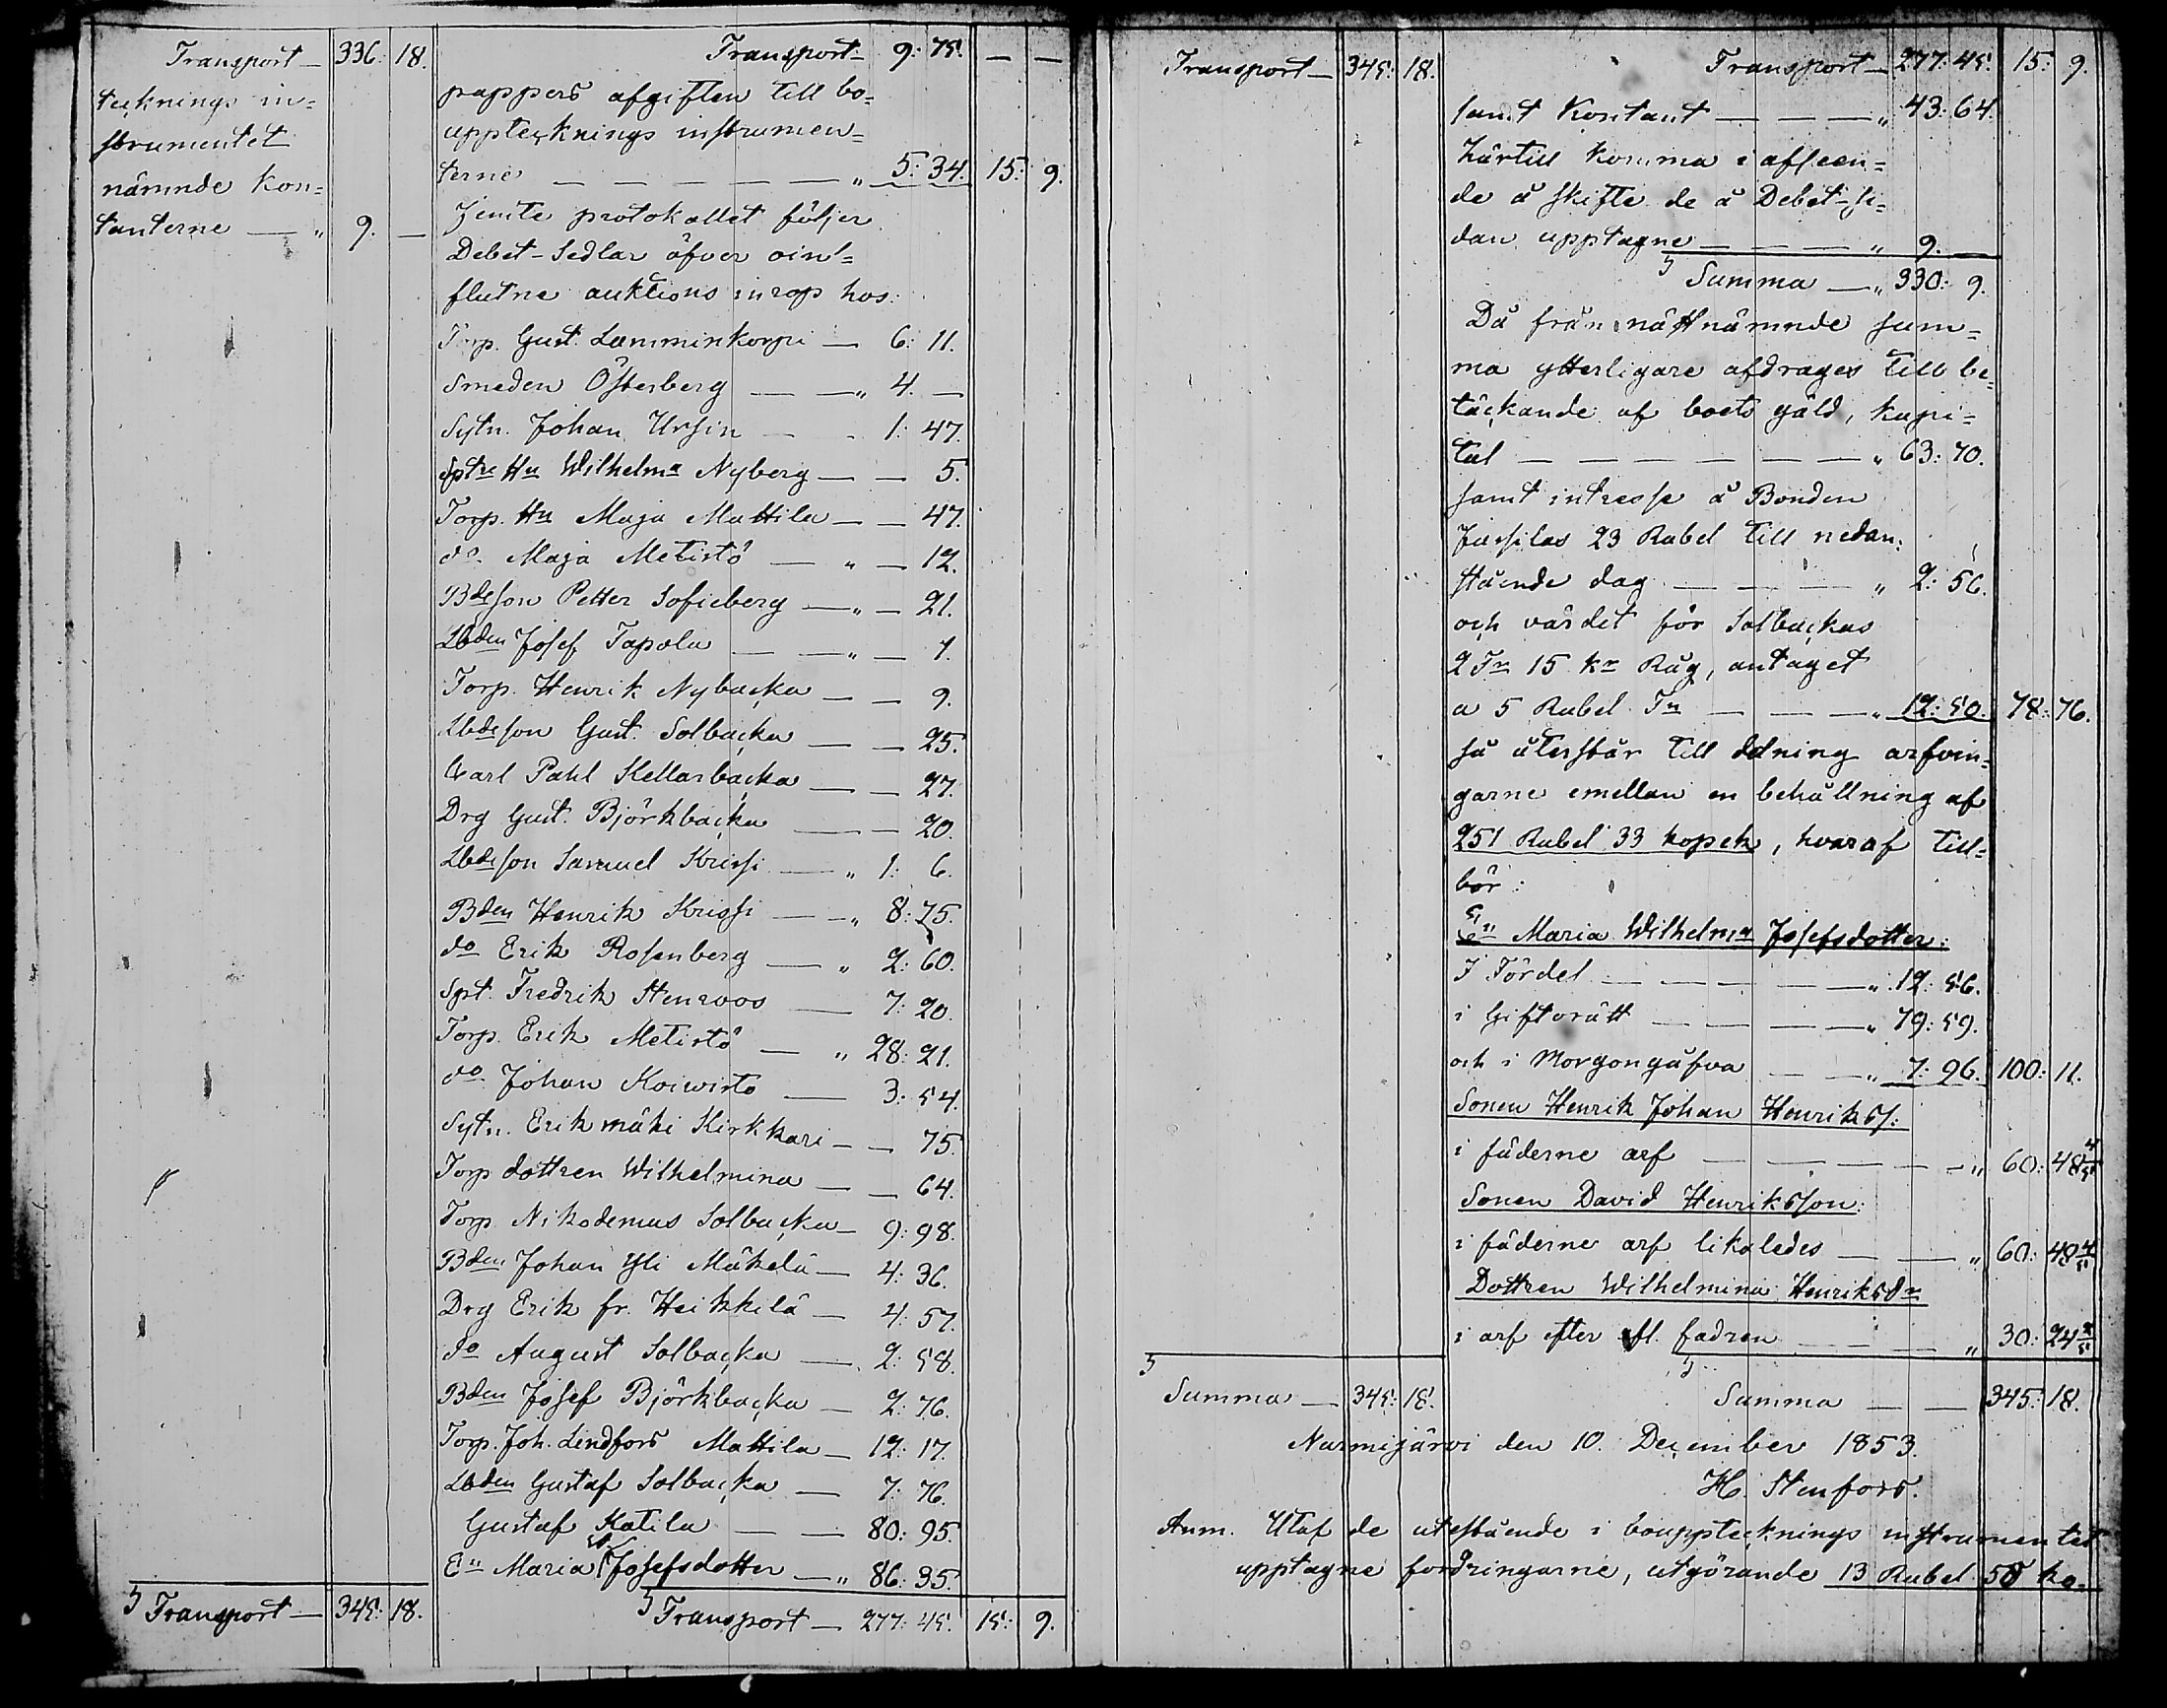 Transport — 336: 18.
tecknings in=
strumentet
nämnde kon=
tanterne — „ 9. —
Transport — 345: 18.
Transport — 9: 75. — —
pappers afgiften till bo=
upptecknings instrumen=
terne — — — — — „ 5: 34. 15: 9.
Jemte protokollet följer
Debet-Sedlar öfver oin=
flutne auktions inrop hos:
Torp. Gust. Lamminkorpi — 6: 11.
Smeden Österberg — — „ 4. —
Sytn. Johan Ursin — - 1: 47.
Sptre Hu Wilhelma Nyberg — — 5.
Torp. Hu Maja Mattila — — 47.
do. Maja Metistö — „ — 12.
Bdeson Petter Sofieberg — „ — 21.
Lbden Josef Tapola — — „ — 1.
Torp. Henrik Nybacka — — 9.
Lbdeson Gust. Solbacka — — 25.
Carl Pahl Kellarbacka — — 27.
Drg Gust. Björkbacka — — 20.
Lbdeson Samuel Krissi — „ 1: 6.
Bden Henrik Krissi — — „ 8: 25.
do Erik Rosenberg — „ 2: 60.
Spt. Fredrik Stenroos — 7: 20.
Torp. Erik Metistö — „ 28: 21.
do Johan Koiwisto — 3: 54.
Sytn. Erik mäki Kirkkari — — 75.
Torp dottren Wilhelmina — — 64.
Torp. Nikodemus Solbacka — 9: 98.
Bden Johan Yli Mäkelä — 4: 36.
Drg Erik fr. Heikkilä — 4: 57.
do August Solbacka — 2: 58.
Bden Josef Björkbacka — 2: 76.
Torp. Joh. Lindfors Mattila — 12: 17.
Lbden Gustaf Solbacka — 7: 76.
Gustaf Katila — — 80: 95.
En Maria Josefsdotter — „ 86: 35.
Transport — 277: 45. 15: 9.
Transport — 345: 18.
Summa — 345: 18.
Transport — 277: 45. 15: 9.
samt Kontant — — — „ 43: 64.
Härtill komma i afseen=
de å skifte de å Debet-si=
dan upptagne — — — „ 9. —
Summa — „ 330: 9.
Då från nästnämnde sum=
ma ytterligare afdrages till be=
täckande af boets gäld, kapi=
tal — — — — — — „ 63: 70.
samt intresse å Bonden
Jussilas 23 Rubel till nedan:
stående dag — — — „ 2: 56.
och värdet för Solbackas
2 Tn 15 kr Råg, antaget
a 5 Rubel Tn — — — „ 12: 50. 78: 76.
så återstår till delning arfvin=
garne emellan en behållning af
251 Rubel 33 kopek, hvaraf till=
bör:
En Maria Wilhelma Josefsdotter:
I Fördel — — — — — „ 12: 56.
i Giftorätt — — — — „ 79: 59.
och i Morgongåfva — — „ 7: 96. 100: 11.
Sonen Henrik Johan Henrikss:
i fäderne arf — — — — — „ 60: 48 4/5
Sonen David Henriksson:
i fäderne arf likaledes — — „ 60: 48 4/5
Dottren Wilhelmina Henriksdr
i arf efter afl. fadren — — — „ 30: 24 2/5
Summa — — 345: 18.
Nurmijärvi den 10. December 1853.
H. Stenfors.
Anm. Utaf de utestående i bouppteckningsinstrumentet
upptagne fordringarne, utgörande 13 Rubel 58 ko.